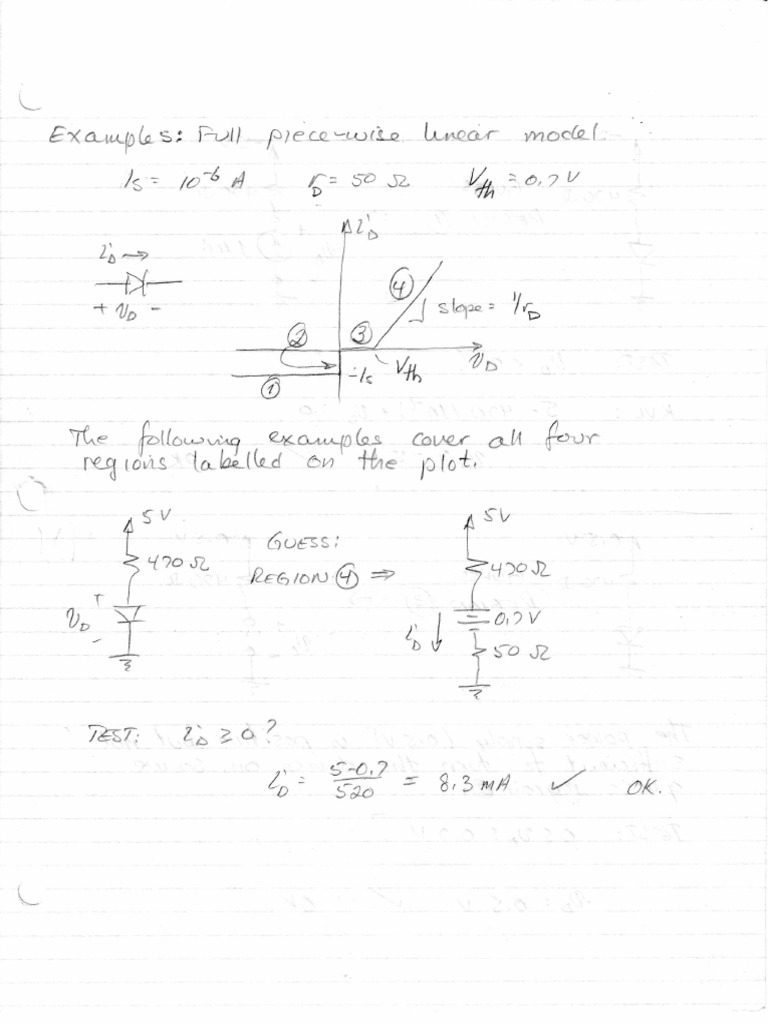 Examples: Full piece-wise linear model.
Is = 10⁻⁶ A   r_D = 50 Ω   V_th = 0.7 V
i_D
i_D →
④
slope = 1/r_D
+ v_D -
② ③
v_D
-Is V_th
①
The following examples cover all four
regions labelled on the plot.
5V
GUESS:
5V
470 Ω
REGION ④ ⇒
470 Ω
+
v_D
-
i_D ↓
0.7V
50 Ω
TEST: i_D ≥ 0?
i_D = 5-0.7/520 = 8.3 mA ✓ OK.